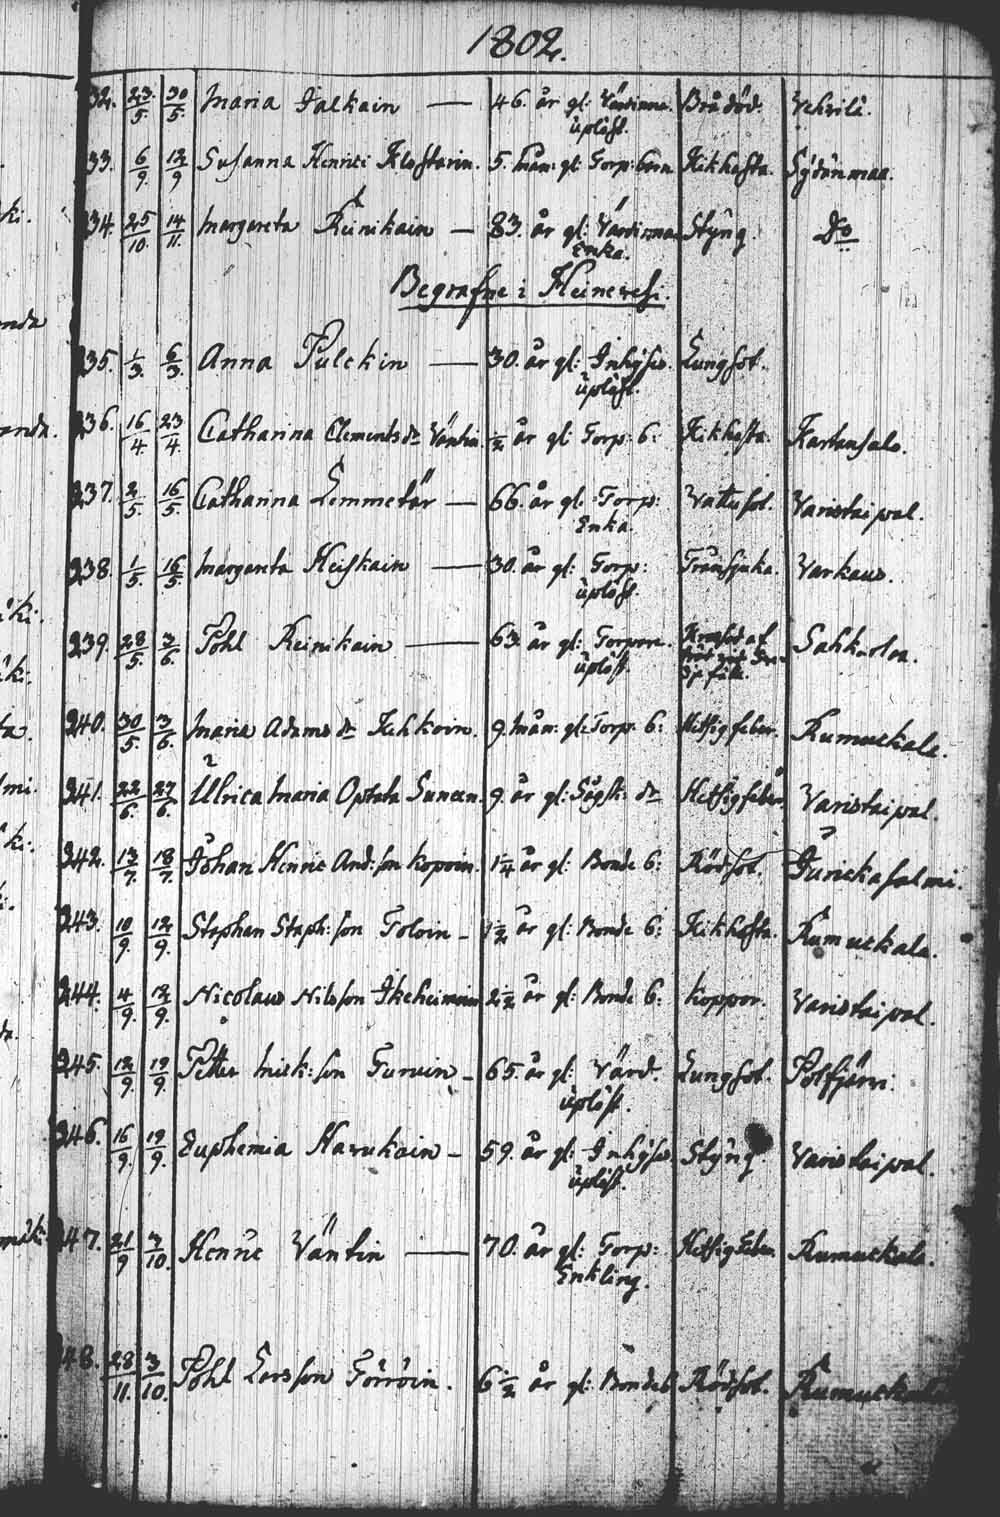 1802.
32. 23/5. 30/5. Maria Jalkain — 46. år gl: Värdinna Brådöd. Vehvilä.
uplöst.
33. 6/9. 12/9 Susanna Henrici Klostarin. 5. mån: gl: Torp: barn Kikhosta. Sydänmaa.
234. 25/10. 14/11. Margareta Reinikain — 83. år gl: Värdinna Styng Do
Enka.
Begrafne i Heinevesi.
235. 1/3. 6/3. Anna Pulckin — 30. år gl: Inhyses Lungsot.
uplöst.
236. 16/4. 23/4. Catharina Clements dr Väntin ½ år gl: Torp: b: Kikhosta. Kartansalo.
237. 2/5. 16/5. Catharina Lemmetär — 66. år gl: Torp: Vattusot. Varistaipal.
Enka.
238. 1/5. 16/5. Margareta Heiskain — 30. år gl: Torp: Trånsjuka. Varkaus.
uplöst.
239. 28/5. 7/6. Påhl Reinikain — 63. år gl: Torpare. Sahkarlax.
uplöst.
240. 30/5. 3/6. Maria Adams dr Kehkoin. 9. mån: gl: Torp. b: Hetsig feber. Rumuckala.
241. 22/6. 27/6. Ulrica Maria Optata Sunean. 9. år gl: dr Hetsig feber. Varistaipal.
242. 13/7. 18/7. Johan Henric And: son Kopoin. 1¼ år gl: Bonde b: Rödsot. Jurickasalmi.
243. 10/9. 12/9. Stephan Steph: son Toloin — 1½ år gl: Bonde b: Kikhosta. Rumuckala.
244. 4/9. 12/9. Nicolaus Nilsson Ikäheimoin 2½ år gl: Bonde b: Koppor. Varistaipal.
245. 12/9. 19/9. Petter Mick: son Turuin — 65. år gl: Värd. Lungsot. Pölfjärvi.
uplöst.
246. 16/9. 19/9. Euphemia Havukain — 59. år gl: Inhyses Styng. Varistaipal.
uplöst.
247. 21/9 7/10. Henric Väntin — 70. år gl: Torp: Hetsig Feber. Rumuckala.
Enkling.
48. 28/11. 3/10. Påhl Larsson Törröin. 6½ år gl: Bonde b Rödsot. Rumuckala